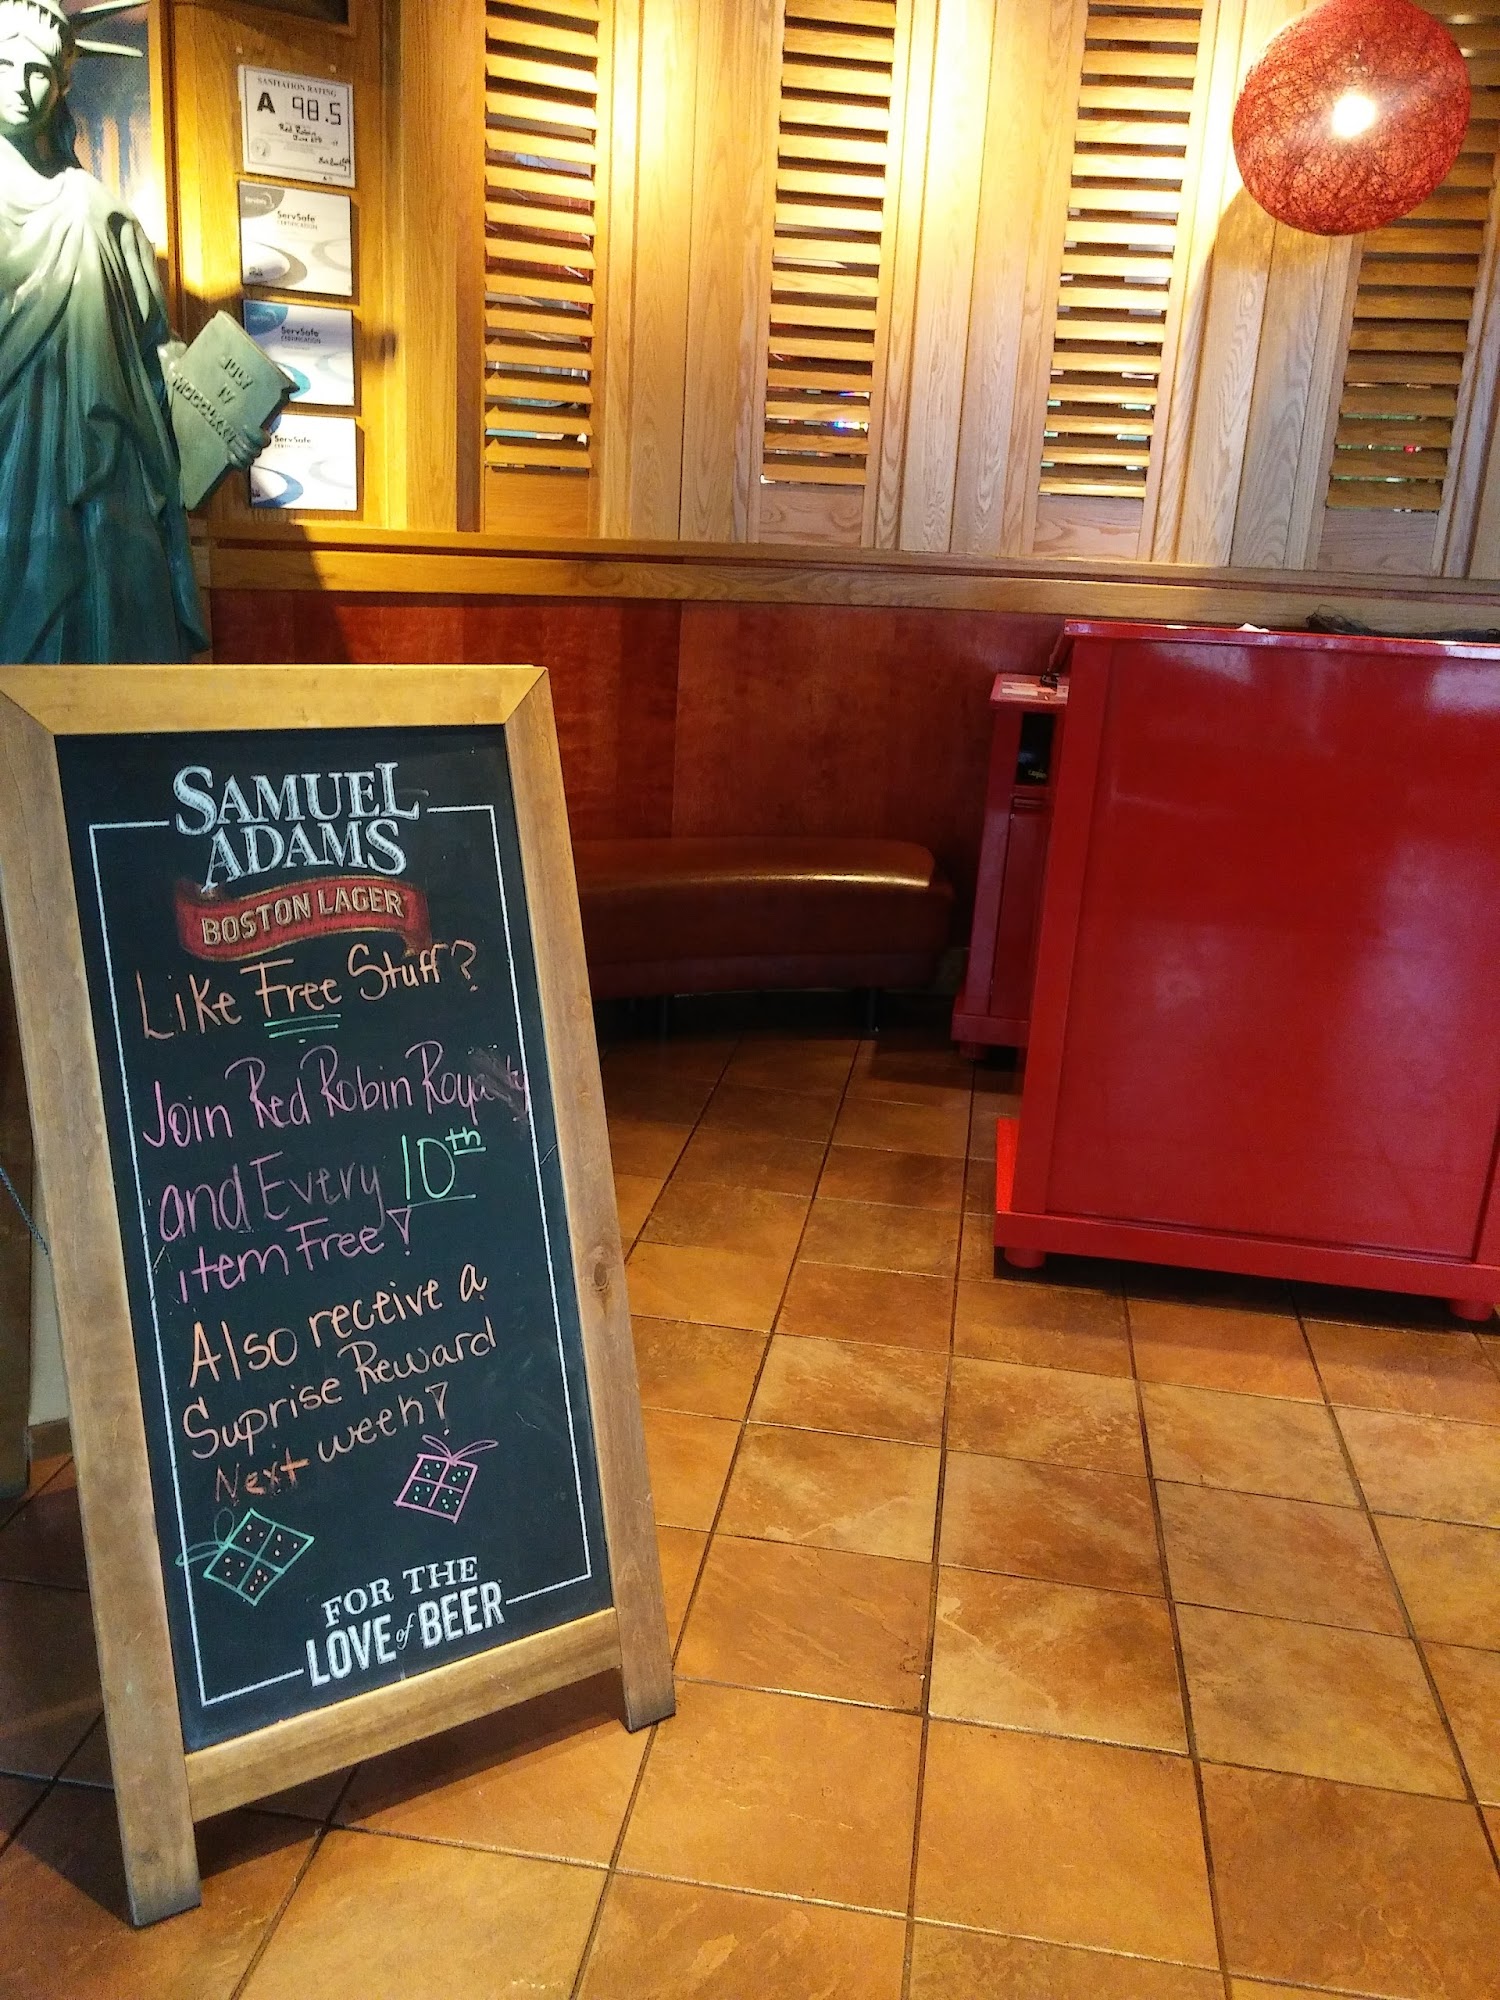 SANITATION RATING
A 98.5
Red Robin
ServSafe
CERTIFICATION
ServSafe
CERTIFICATION
ServSafe
JULY
IV
SAMUEL
ADAMS
BOSTON LAGER
Like Free Stuff?
Join Red Robin Royalty
and Every 10th
item Free!
Also receive a
Suprise Reward
Next week!
FOR THE
LOVE of BEER